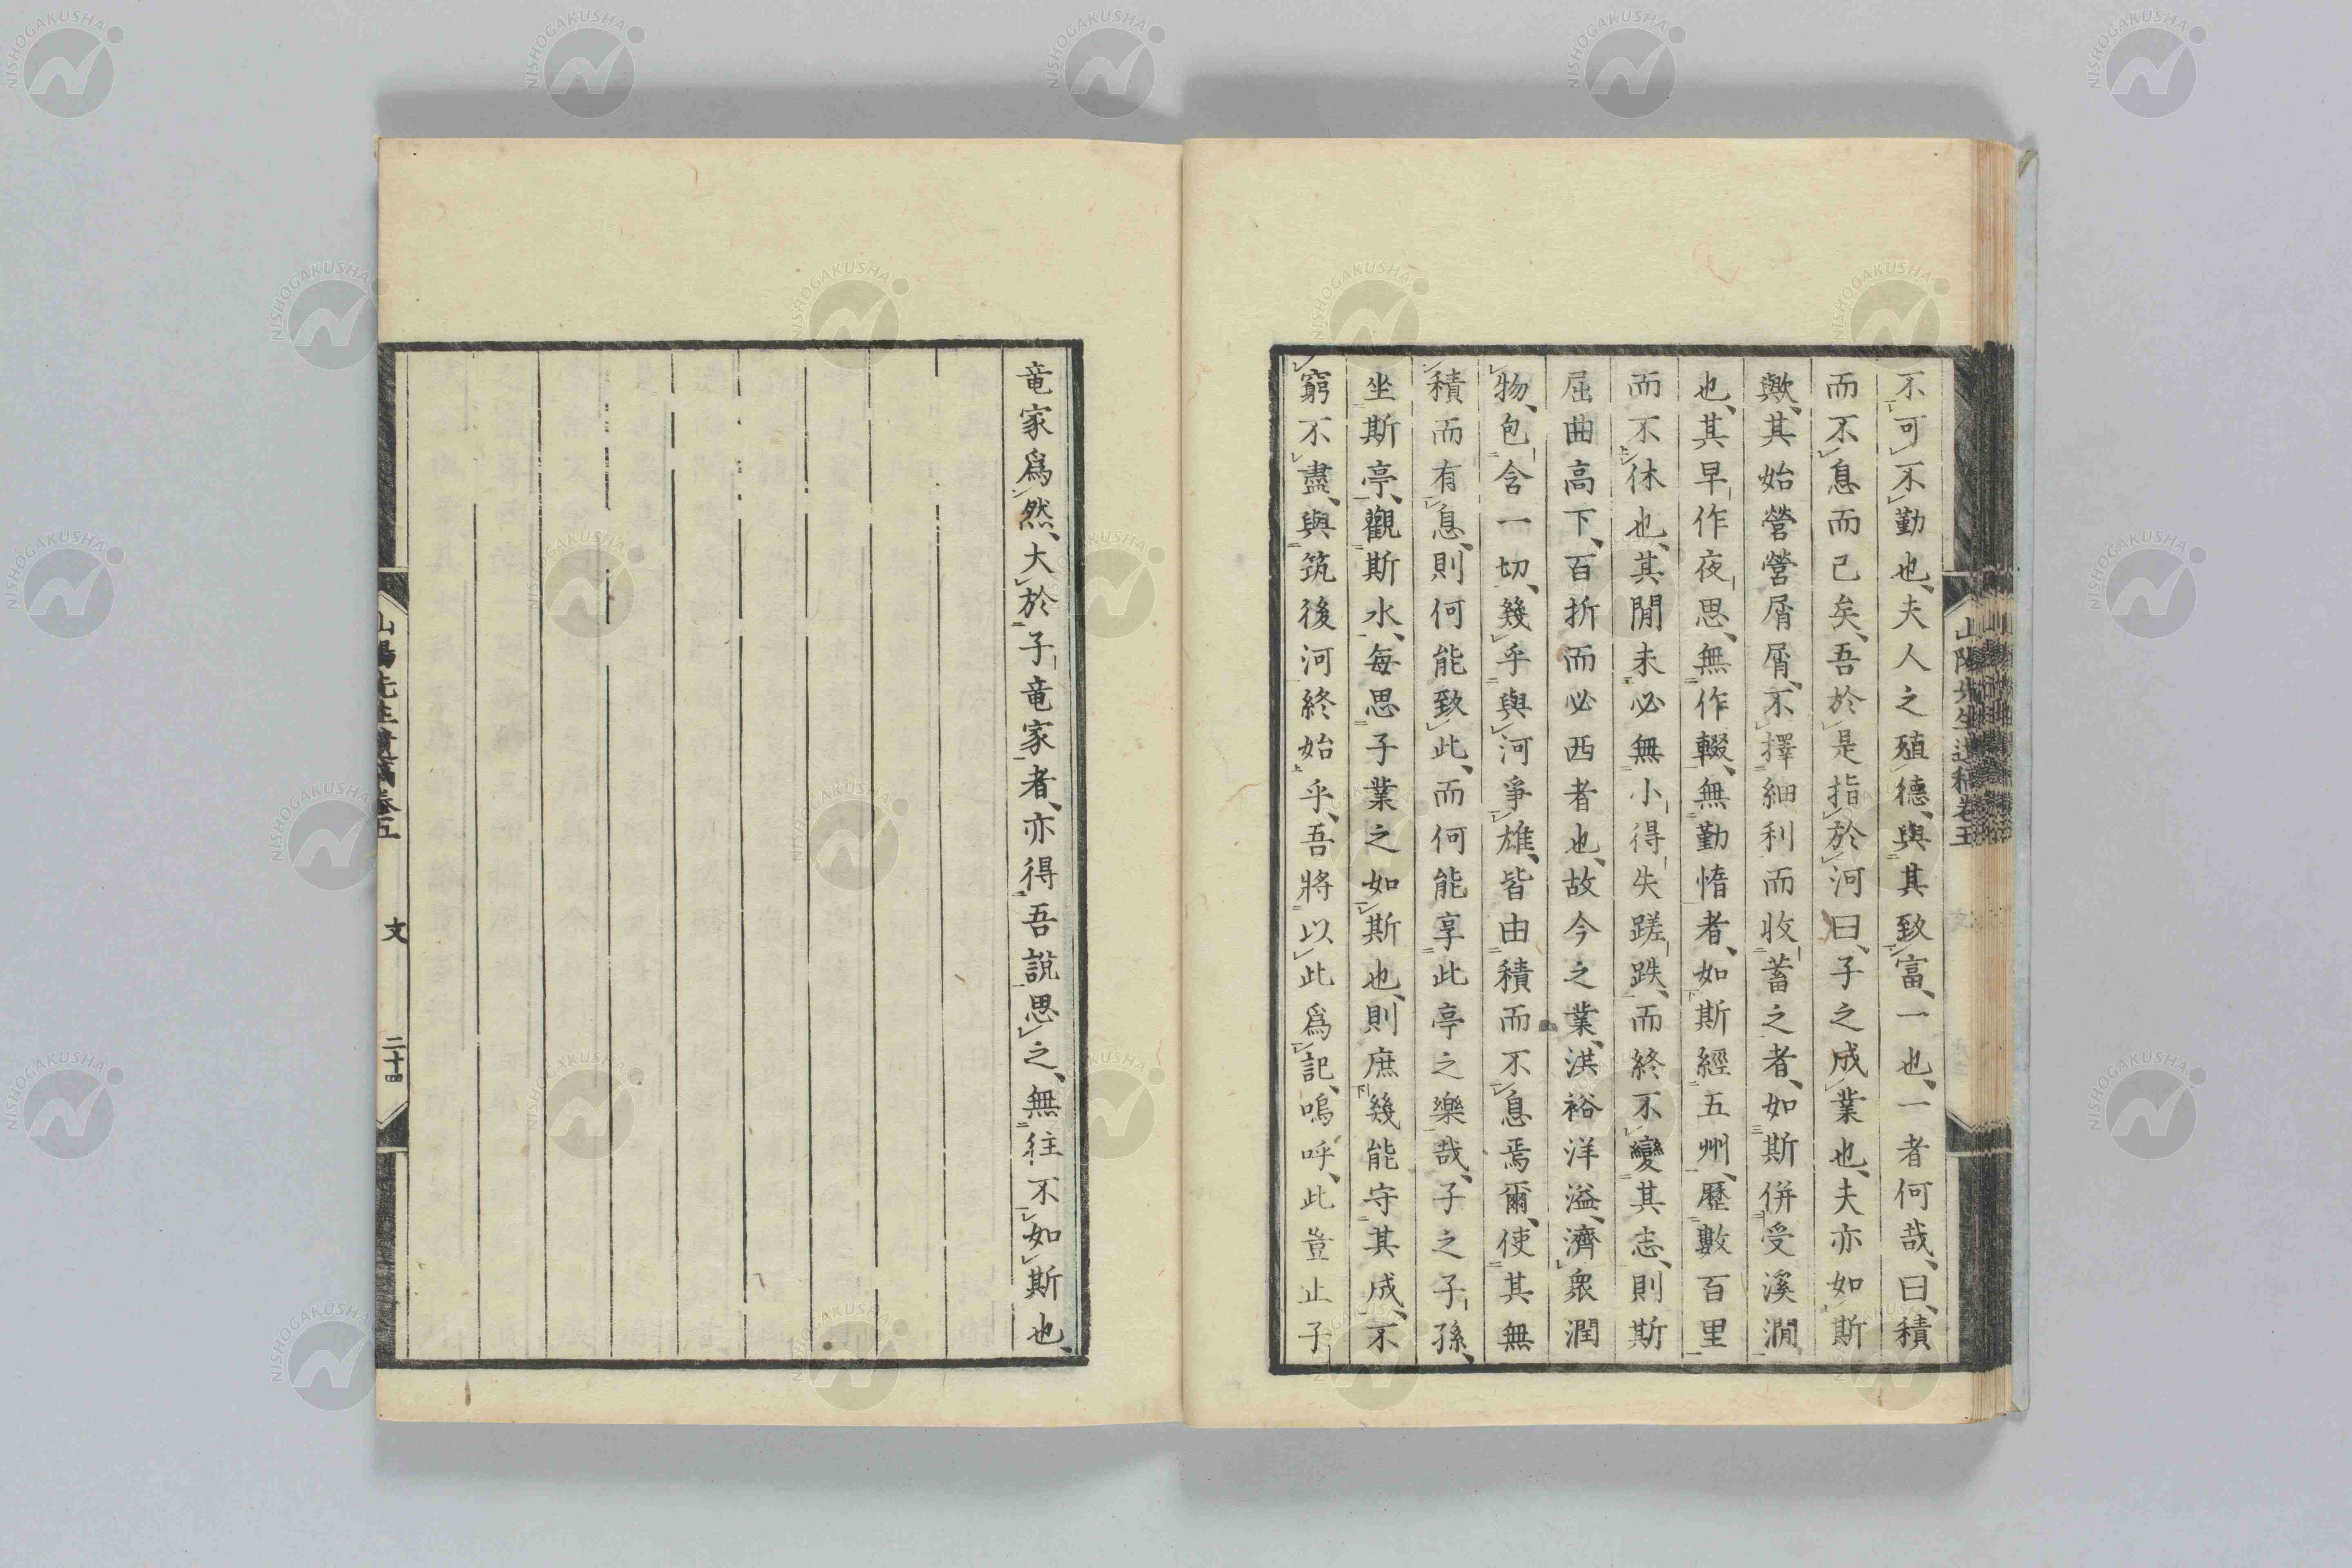 不可不勤也、夫人之殖德、與其致富、一也、一者何哉、曰、積
而不息而已矣、吾於是指於河曰、子之成業也、夫亦如斯
歟、其始營營屑屑、不擇細利而收蓄之者、如斯併受溪澗
也、其早作夜思、無作輟、無勤惰者、如斯經五州、歷數百里
而不休也、其間未必無小得失蹉跌、而終不變其志、則斯
屈曲高下、百折而必西者也、故今之業、洪裕洋溢、濟衆潤
物、包含一切、幾乎與河爭雄、皆由積而不息焉爾、使其無
積而有息、則何能致此、而何能享此亭之樂哉、子之子孫、
坐斯亭、觀斯水、每思子業之如斯也、則庶幾能守其成、不
窮不盡、與筑後河終始乎、吾將以此爲記、嗚呼、此豈止子
竜家爲然、大於子竜家者、亦得吾說思之、無往不如斯也、
山陽先生遺稿卷五
文
二十四
山陽先生遺稿卷五
NISHOGAKUSHA